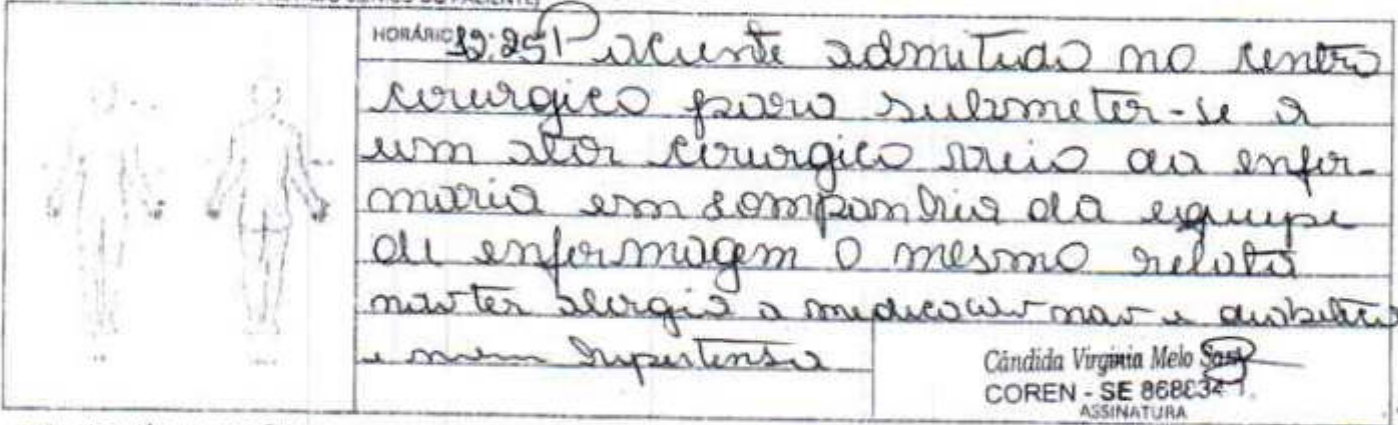 HORÁRIO 12:25 Paciente admitido no centro
cirurgico para submeter-se a
um ator cirurgico veio da enfer-
maria em companhia da equipe
de enfermagem o mesmo relata
nao ter alergia a medicacao nao e diabetico
e nem hipertenso
Cândida Virginia Melo
COREN - SE
ASSINATURA